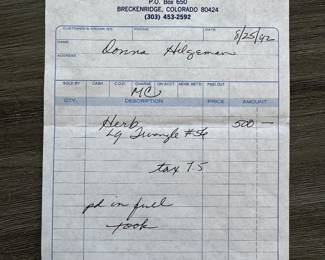 P.O. Box 650
BRECKENRIDGE, COLORADO 80424
(303) 453-2592
CUSTOMER'S ORDER NO. PHONE DATE 8/25/92
NAME Donna Helgeman
ADDRESS
SOLD BY CASH C.O.D. CHARGE ON ACCT. MDSE. RETD. PAID OUT
MC
QTY. DESCRIPTION AMOUNT
Herb 500 —
Lg Triangle #56
tax 7.5
pd in full
took